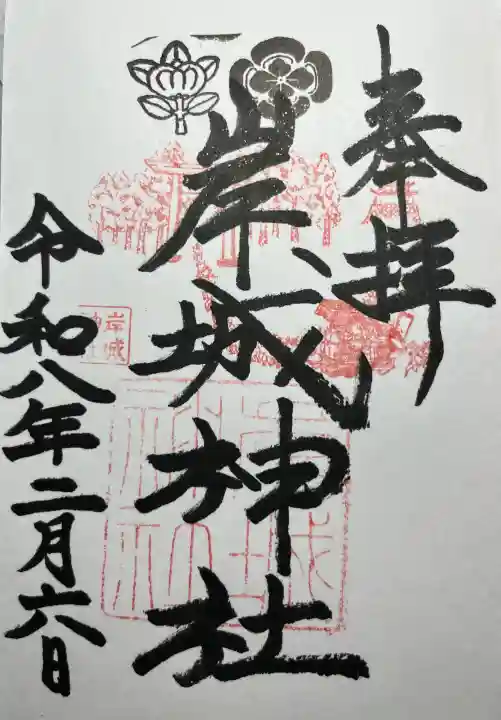 奉拝
岸城神社
令和八年二月六日
岸城
神社
岸城
神社